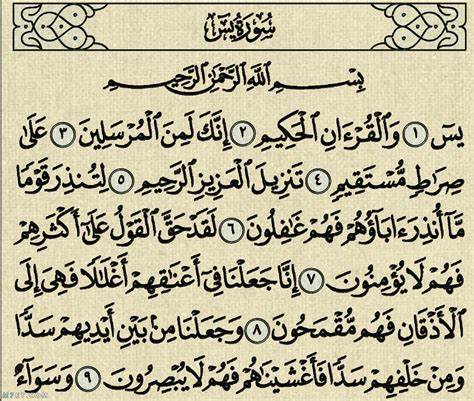 سُورَةُ يسٓ
بِسْمِ اللَّهِ الرَّحْمَٰنِ الرَّحِيمِ
يسٓ ١ وَالْقُرْءَانِ الْحَكِيمِ ٢ إِنَّكَ لَمِنَ الْمُرْسَلِينَ ٣ عَلَىٰ
صِرَاطٍ مُّسْتَقِيمٍ ٤ تَنزِيلَ الْعَزِيزِ الرَّحِيمِ ٥ لِتُنذِرَ قَوْمًا
مَّا أُنذِرَ ءَابَاؤُهُمْ فَهُمْ غَافِلُونَ ٦ لَقَدْ حَقَّ الْقَوْلُ عَلَىٰ أَكْثَرِهِمْ
فَهُمْ لَا يُؤْمِنُونَ ٧ إِنَّا جَعَلْنَا فِي أَعْنَاقِهِمْ أَغْلَالًا فَهِيَ إِلَى
الْأَذْقَانِ فَهُم مُّقْمَحُونَ ٨ وَجَعَلْنَا مِن بَيْنِ أَيْدِيهِمْ سَدًّا
وَمِنْ خَلْفِهِمْ سَدًّا فَأَغْشَيْنَاهُمْ فَهُمْ لَا يُبْصِرُونَ ٩ وَسَوَاءٌ
M7ET.COM